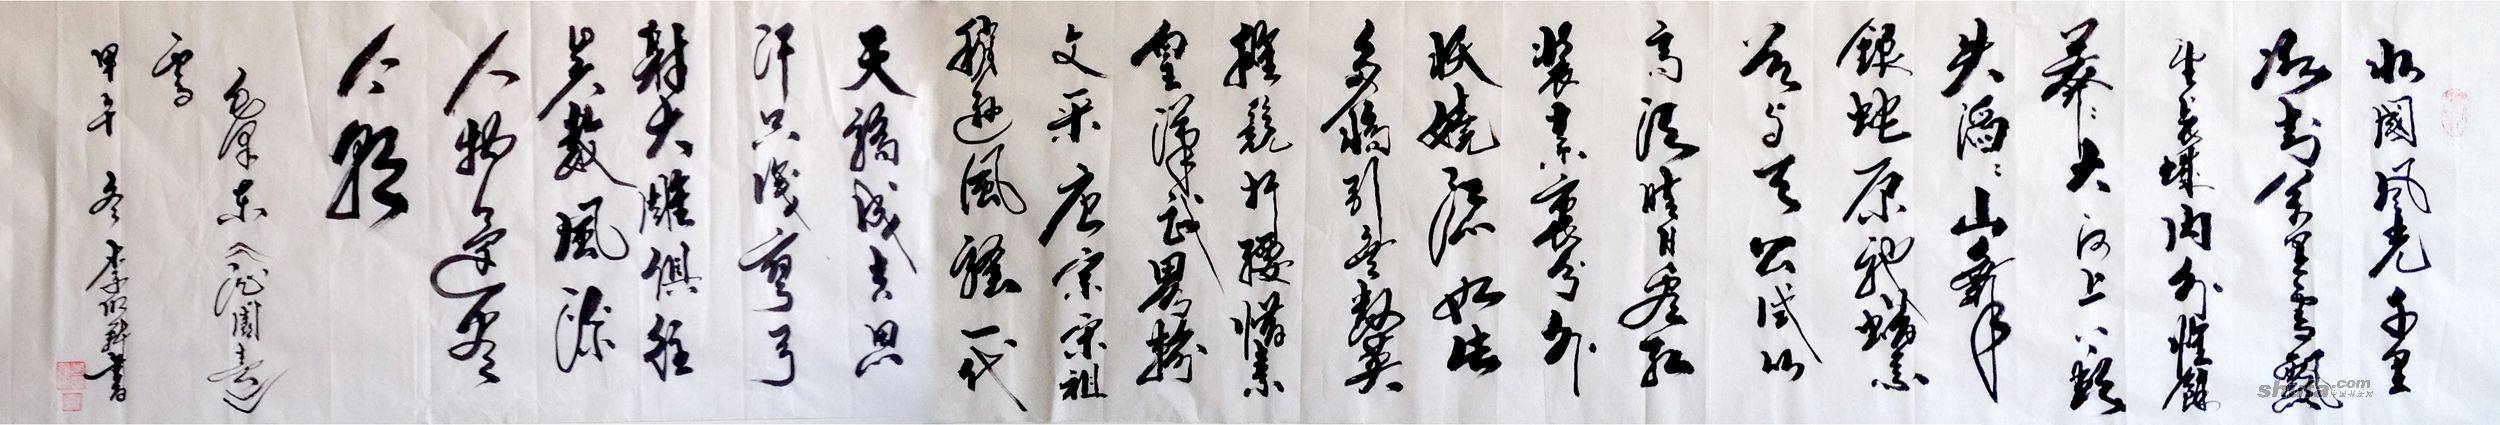 北國風光千里
冰封萬里雪飄
望長城內外惟餘
莽〻大河上下頓
失滔〻山舞
銀蛇原馳蠟象
欲与天公試比
高須晴日看紅
裝素裹分外
妖嬈江山如此
多嬌引無數英
雄競折腰惜秦
皇漢武畧輸
文采唐宗宋祖
稍遜風騷一代
天驕成吉思
汗只識彎弓
射大雕俱往
矣數風流
人物還看
今朝
毛澤东《沁園春》
雪
甲午 冬 李 書
shufa.com